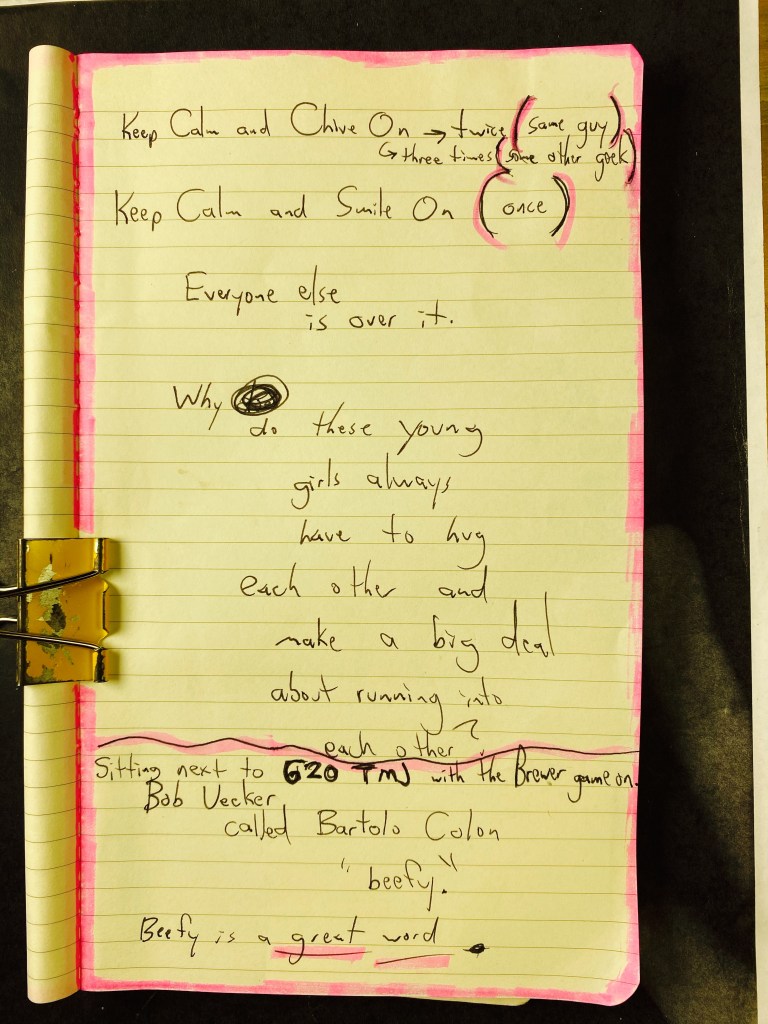 Keep Calm and Chive On → twice (same guy)
↳ three times (some other geek)
Keep Calm and Smile On (once)
Everyone else
is over it.
Why
do these young
girls always
have to hug
each other and
make a big deal
about running into
each other?
Sitting next to 620 TMJ with the Brewer game on.
Bob Uecker
called Bartolo Colon
"beefy."
Beefy is a great word.